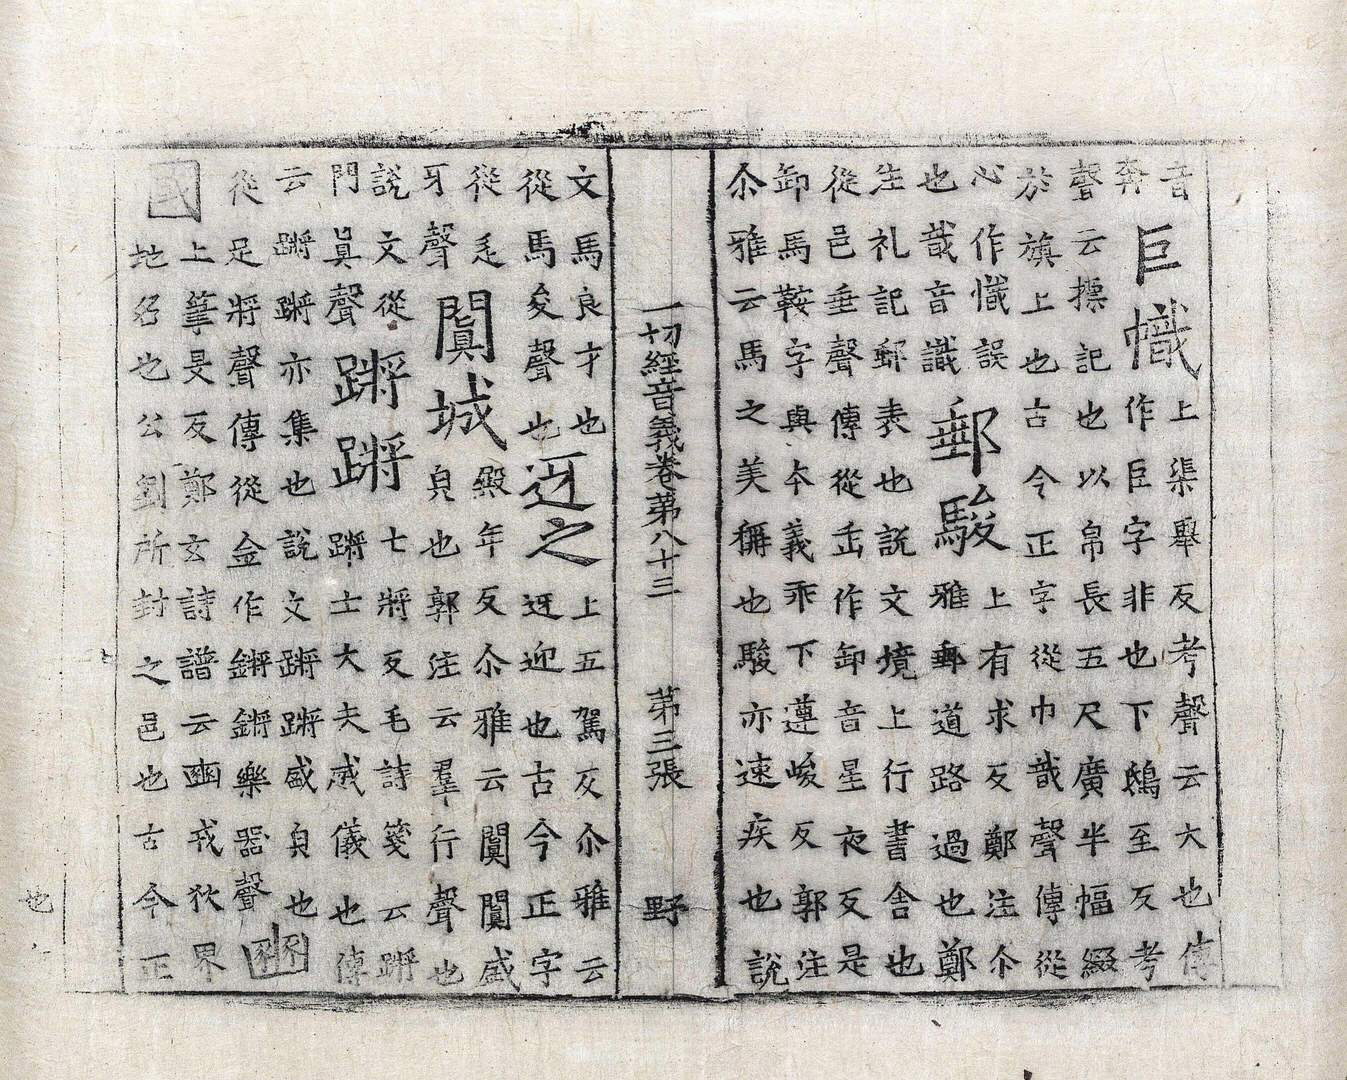 音
奔
巨幟
上渠舉反考聲云大也傳
作巨字非也下鴟至反考
聲云摽記也以帛長五尺廣半幅綴
於旗上也古今正字從巾哉聲傳從
心作懺誤
也哉音識
郵駿
上有求反鄭注尒
雅郵道路過也鄭
注礼記郵表也説文境上行書舍也
從邑垂聲傳從缶作卸音星夜反是
卸馬鞍字與夲義乖下遵峻反郭注
尒雅云馬之美稱也駿亦速疾也説
一切經音義卷第八十三 第三張 野
文馬良才也
從馬夋聲也
迓之
上五駕反尒雅云
迓迎也古今正字
從辵
牙聲
闐城
殿年反尒雅云闐闐盛
皃也郭注云羣行聲也
説文從
門眞聲
蹡蹡
七將反毛詩箋云蹡
蹡士大夫威儀也傳
云蹡蹡亦集也説文蹡蹡盛皃也
從足將聲傳從金作鏘鏘樂器聲
豳
國
上筆旻反鄭玄詩譜云豳戎狄界
地名也公劉所封之邑也古今正
也